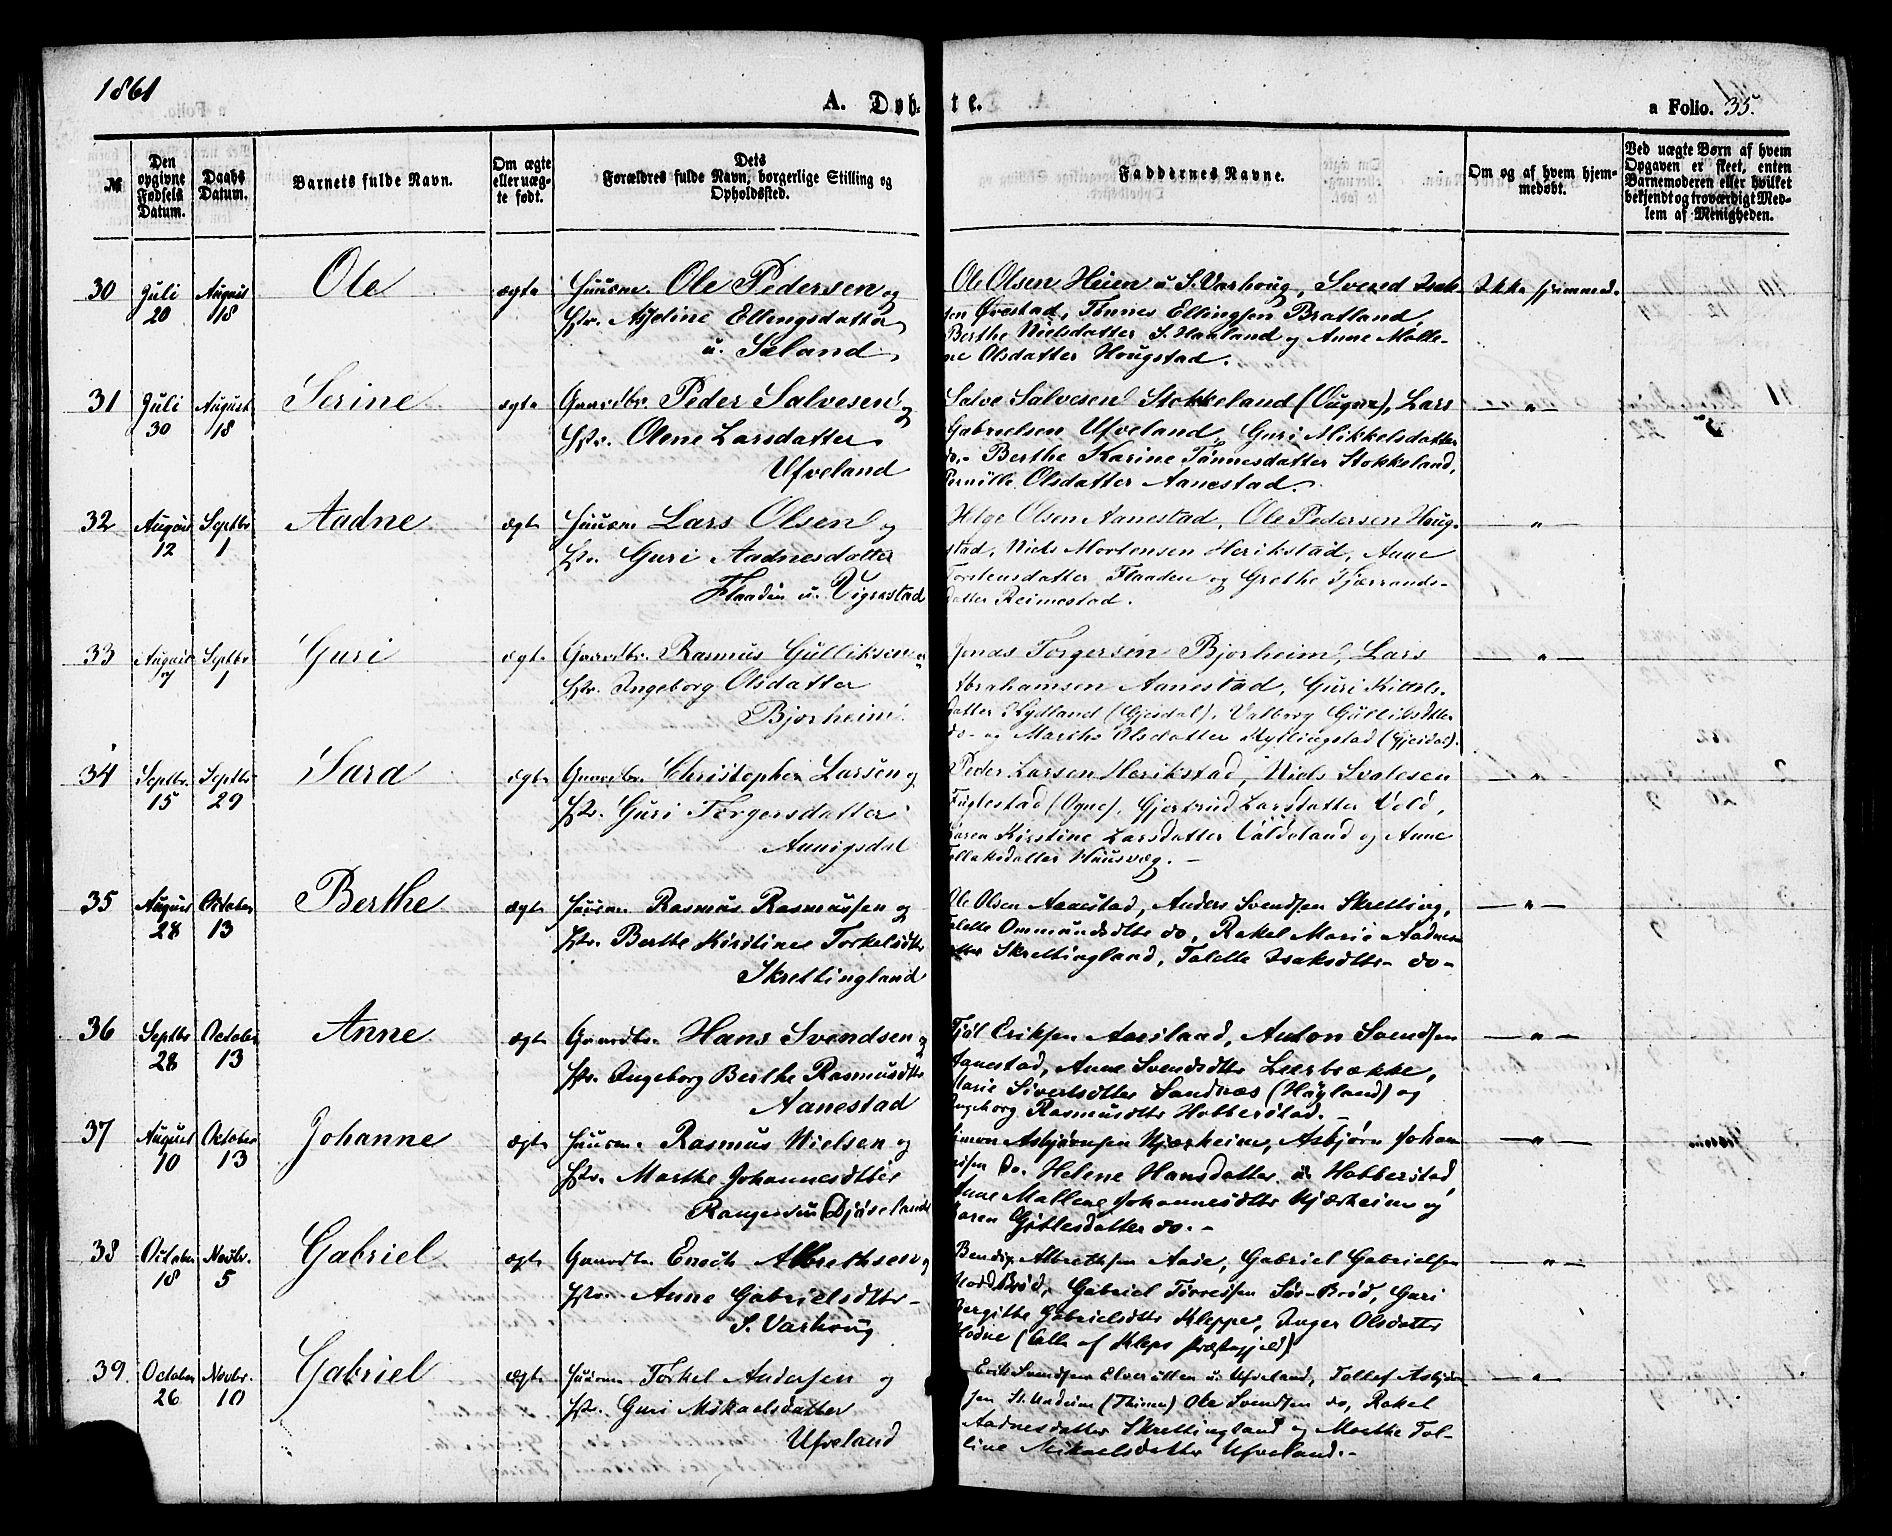 1861
A. Døb-
te.
a Folio. 35.
№
Den
opgivne
Fødsels
Datum.
Daabs
Datum.
Barnets fulde Navn.
Om ægte
eller uæg-
te født.
Dets
Forældres fulde Navn, borgerlige Stilling og
Opholdssted.
Faddernes Navne.
Om og af hvem hjem-
medøbt.
Ved uægte Børn af hvem
Opgaven er skeet, enten
Barnemoderen eller hvilket
bekjendt og troværdigt Med-
lem af Menigheden.
30 Juli August Ole ægte Huusm. Ole Pedersen og
20 18 Hstr. Ellingsdatter
u. Seland
Ole Olsen Heien u. S. Varhoug, Svend Isak-
sen Ovestad, Tønnes Ellingsen Bratland,
Berthe Nielsdatter S. Haaland og Anne Malle-
ne Olsdatter Hougstad.
Ikke hjemmed.
31 Juli August Serine ægte Gaardbr. Peder Salvesen og
30 18 Hstr. Olene Larsdatter
Ufveland
Salve Salvesen Stokkeland (Ougne), Lars
Gabrielsen Ufveland, Guri Mikkelsdatter
do- Berthe Karine Tønnesdatter Stokkeland,
Pernille Olsdatter Aanestad.
— „ —
32 August Septbr Aadne ægte Huusm Lars Olsen og
12 1 Hstr. Guri Aadnesdatter
Flaaden u. Vigrestad
Helge Olsen Aanestad, Ole Pedersen Houg-
stad, Niels Mortensen Herikstad, Anne
Torstensdatter Flaaden og Grethe Tjærrands-
datter Reimestad.
— „ —
33 August Septbr Guri ægte Gaardbr. Rasmus Gulliksen og
1 Hstr. Ingeborg Olsdatter
Bjorheim
Jonas Torgersen Bjorheim, Lars
Abrahamsen Aanestad, Guri Kittels-
datter Kydland (Gjesdal), Valborg Gulliksdtter
do- og Marthe Olsdatter Kyllingstad (Gjesdal).
— „ —
34 Septbr. Septbr Sara ægte Gaardbr. Christopher Larsen og
15 29 Hstr. Guri Torgersdatter
Auuigsdal
Peder Larsen Herikstad, Niels Svalesen
Fuglestad (Ogne), Gjertrud Larsdatter Vold,
Karen Kirstine Larsdatter og Anne
Tollaksdatter Huusvæg. —
— „ —
35 August October Berthe ægte Huusm Rasmus Rasmussen og
28 13 Hstr. Berthe Kirstine Torkelsdtr
Skrettingland
Ole Olsen Aanestad, Anders Svendsen Skretting,
Talette Ommundsdtr do, Rakel Marie Aadnes-
datter Skrettingland, Talette Isaksdtr- do-
— „ —
36 Septbr October Anne ægte Gaardbr. Hans Svendsen og
28 13 Hstr. Ingeborg Berthe Rasmusdtr
Aanestad
Eriksen Aarsland, Anton Svendsen
Aanestad, Anne Svendsdtr Leerbrække,
Marie Sivertsdtter Sandnæs (Høyland) og
Ingeborg Rasmusdtr Hobberstad. —
— „ —
37 August October Johanne ægte Huusm. Rasmus Nielsen og
10 13 Hstr. Marthe Johannesdtter
(Djøseland)
Simon Asbjørnsen Njærheim, Asbjørn Johan-
nessen do. Helene Hansdatter u Hobberstad
Anne Mallene Johannesdtr Njærheim og
Karen Gitlesdatter do. —
— „ —
38 October Novbr. Gabriel ægte Gaardbr Enoch Albrethsen og
18 5 Hstr. Anne Gabrielsdtr -
S. Varhoug
Bendix Albrethsen Aade, Gabriel Gabrielsen
Nord Brød, Gabriel Torressen Sør-Brød, Guri
Bergitte Gabrielsdtr Kleppe, Inger Olsdatter
Hodne (alle af Kleps Præstegjeld)
— „ —
39 October Novbr. Gabriel ægte Huusm Torkel Andersen og
26 10 Hstr. Guri Mikaelsdatter
Ufveland
Erik Svendsen u. Ufveland, Tollef Asbjørn-
sen St. Undeim (Thime) Ole Svendsen do, Rakel
Aadnesdatter Skrettingland og Marthe Tol-
line Mikaelsdatter Ufveland. —
— „ —